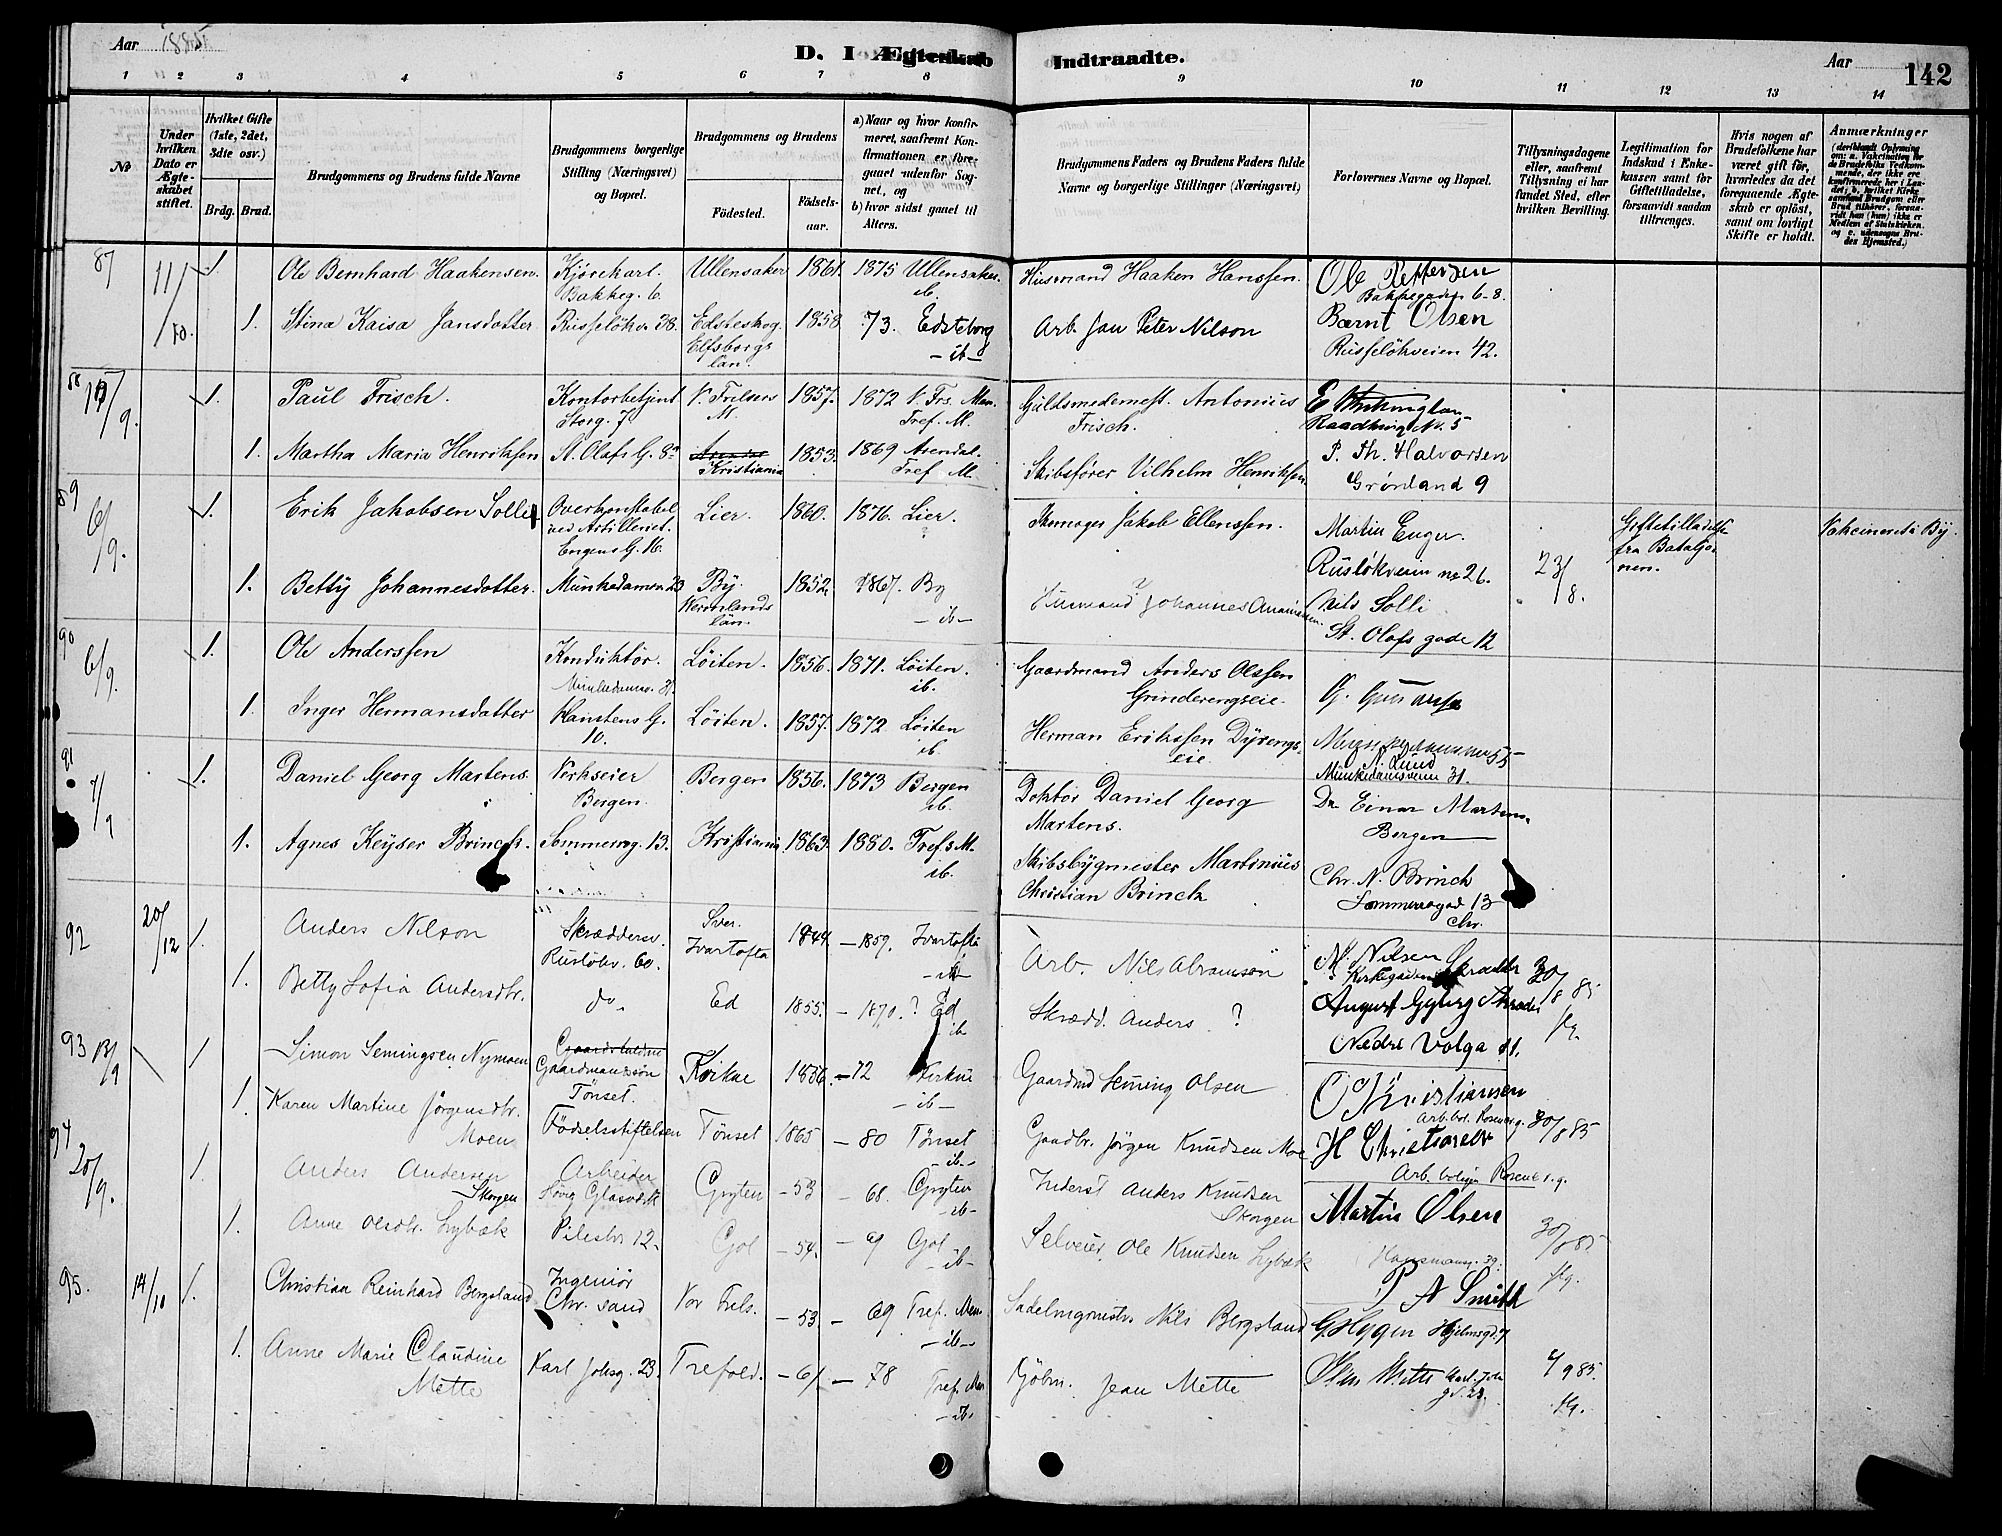 Aar 1885
D. I Ægteskab Indtraadte.
Aar
142
1 2 3 4 5 6 7 8 9 10 11 12 13 14
No
Under hvilken Dato er Ægteskabet stiftet.
Hvilket Gifte (1ste, 2det, 3dte osv.)
Brdg. Brud.
Brudgommens og Brudens fulde Navne
Brudgommens borgerlige Stilling (Næringsvei) og Bopæl.
Brudgommens og Brudens
Fødested. Fødselsaar.
a) Naar og hvor konfirmeret, saafremt Konfirmationen er foregaaet udenfor Sognet, og
b) hvor sidst gaaet til Alters.
Brudgommens Faders og Brudens Faders fulde Navne og borgerlige Stillinger (Næringsvei)
Forlovernes Navne og Bopæl.
Tillysningsdagene eller, saafremt Tillysning ei har fundet Sted, efter hvilken Bevilling.
Legitimation for Indskud i Enkekassen samt for Giftetilladelse, forsaavidt saadan tiltrænges.
Hvis nogen af Brudefolkene har været gift før, hvorledes da det foregaaende Ægteskab er opløst, samt om lovligt Skifte er holdt.
Anmærkninger
87 11/10. 1. Ole Bernhard Haakensen. Kjørekarl. Bakkeg. 6. Ullensaker 1861 1875 Ullensaker. ib. Husmand Haaken Hanssen. Ole Pettersen Bakkegaden 6-8.
1. Stina Kaisa Jansdatter Russeløkv. 38. Edsteskog Elfsborgs län. 1858 73. Edsteborg - ib - Arb. Jan Peter Nilson Bærnt Olsen Russeløkveien 42.
88 /9. 1. Paul Frisch. Kontorbetjent Storg. 7 V. Frelsers M. 1857. 1872 V. Frs. Men. Tref. M. Guldsmedemest. Antonius Frisch. Raadhusg. No. 5
1. Martha Maria Henriksen St. Olafs G. 8 Kristiania 1853. 1869 Arendal. Tref. M. Skibsfører Vilhelm Henriksen P. Th. Halvorsen Grønland 9
89 6/9. 1. Erik Jakobsen Solli Overkonstabel ved Artilleriet. Engens G. 16. Lier. 1860. 1876. Lier. Skomager Jakob Ellenssen. Martin Enger. Rusløkveien no 26. 23/8. Giftetilladelse fra Bataljonen. Vakcineret i By.
1. Betty Johannesdatter. Munkedamsv. 23 By. Vermlands län. 1852. 1867. By - ib - Husmand Johannes Nils Solli St. Olafs gade 12
90 6/9. 1. Ole Anderssen Konduktør. Munkedamsv. 31. Løiten. 1856. 1871. Løiten. ib. Gaardmand Anders Olssen Grinderengseie.
1. Inger Hermansdatter Hanstens G. 10. Løiten. 1857. 1872 Løiten ib. Herman Erikssen Dyrengseie N. Lund Munkedamsveien 31.
91 4/9 1. Daniel Georg Martens Verkseier Bergen. Bergen 1856. 1873 Bergen ib. Doktor Daniel Georg Martens. Dr. Einar Martens. Bergen
1. Agnes Keyser Brinch. Sommerrog. 13. Kristiania 1863. 1880. Tref. M. ib. Skibsbygmester Martinius Christian Brinch Chr. N. Brinch Sommerrogad 13 Chr.
92 20/12 1. Anders Nilson Skræddersv. Rusløkv. 60. Sver. Ivartofta 1844. - 1859. Ivartofta - ib - Arb. Nils Abramson N. Nilsen Skrædder Kirkegaden 30/8 85
1. Betty Sofia Andersdtr. do. Ed 1855. - 1870. ? Ed ib Skrædd. Anders ? August Gyberg Skrædder Nedre Volga 11.
93 13/9 1 Simon Semingsen Nymoen Gaardmandssøn Tønset. Kvikne 1856. - 72 Kvikne - ib - Gaardmd Seming Olsen O Christiansen Arb. bol. Rosenbg.
1. Karen Martine Jørgensdtr. Moen Fødselsstiftelsen Tønset 1865 - 80 Tønset - ib - Gaardbr. Jørgen Knudsen Moe H Christiansen Arb. bolig Rosenb. g. 30/8 85
94 20/9. 1. Anders Andersen Skogen Arbeider Høvig Glasværk Gryten - 53 - 68. Gryten - ib - Inderst Anders Knudsen Skogen Martin Olsen
1. Anne Olsdtr. Lybæk Pilestr. 12. Gol - 54. - 69 Gol - ib - Selveier Ole Knudsen Lybæk Hausmansg. 39. 30/8 85 P A Smith
95. 14/10 1. Christian Reinhard Bergsland Ingeniør Chr. sand Vor Frels. - 53 - 69 Tref. Men. - ib - Sadelmagermestr. Nils Bergsland G Hygen Hjelmsgd. 7
1. Anne Marie Claudine Mette Karl Johsg. 23. Trefold. - 61 - 78 Tref. Men - ib. Kjøbm. Jean Mette Mette Karl Joh gd. 23. 4/9 85.